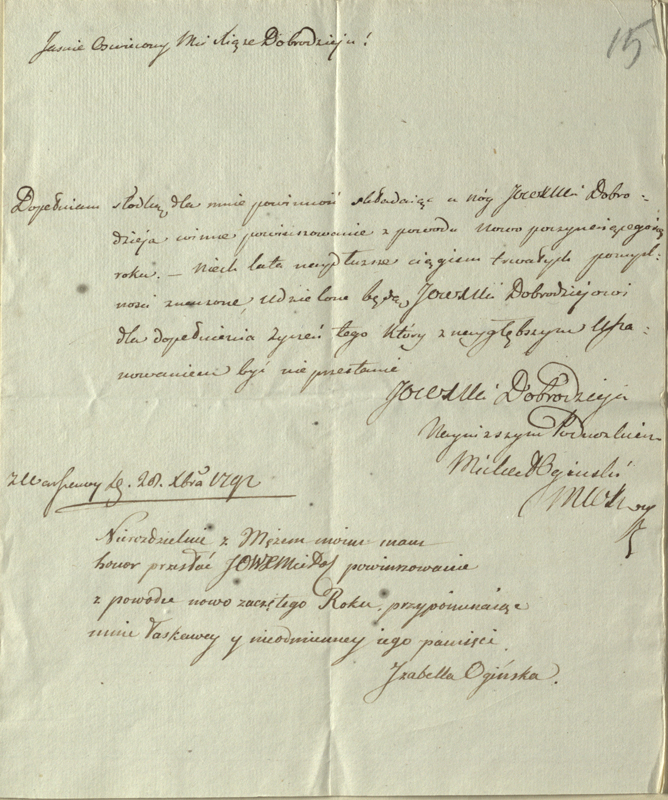 15
Jaśnie Oswiecony Mći Xiąze Dobrodzieju!
Dopełniam słodką dla mnie powinność składaiąc u nóg JOWXMći Dobro-
dzieja winne powinszowanie z powodu nowo poczynaiącego się
roku. — Niech lata naydłuzsze ciągiem trwałych pomyśl-
nosci znaczone, udzielone będą JOWXMći Dobrodziejowi
dla dopełnienia zyczeń tego ktory z naygłębszym Usza-
nowaniem być nie przestanie
JOWXMći Dobrodzieja
Nayniższym Podnóżkiem
Michał Ogiński
z Warszawy d. 28. Xbra 1792
Nierozdzielnie z Mężem moim mam
honor przesłać JOWXMći Do powinszowanie
z powodu nowo zaczętego Roku, przypominaiąc
mnie łaskawey y nieodmienney iego pamięci.
Izabella Ogińska.